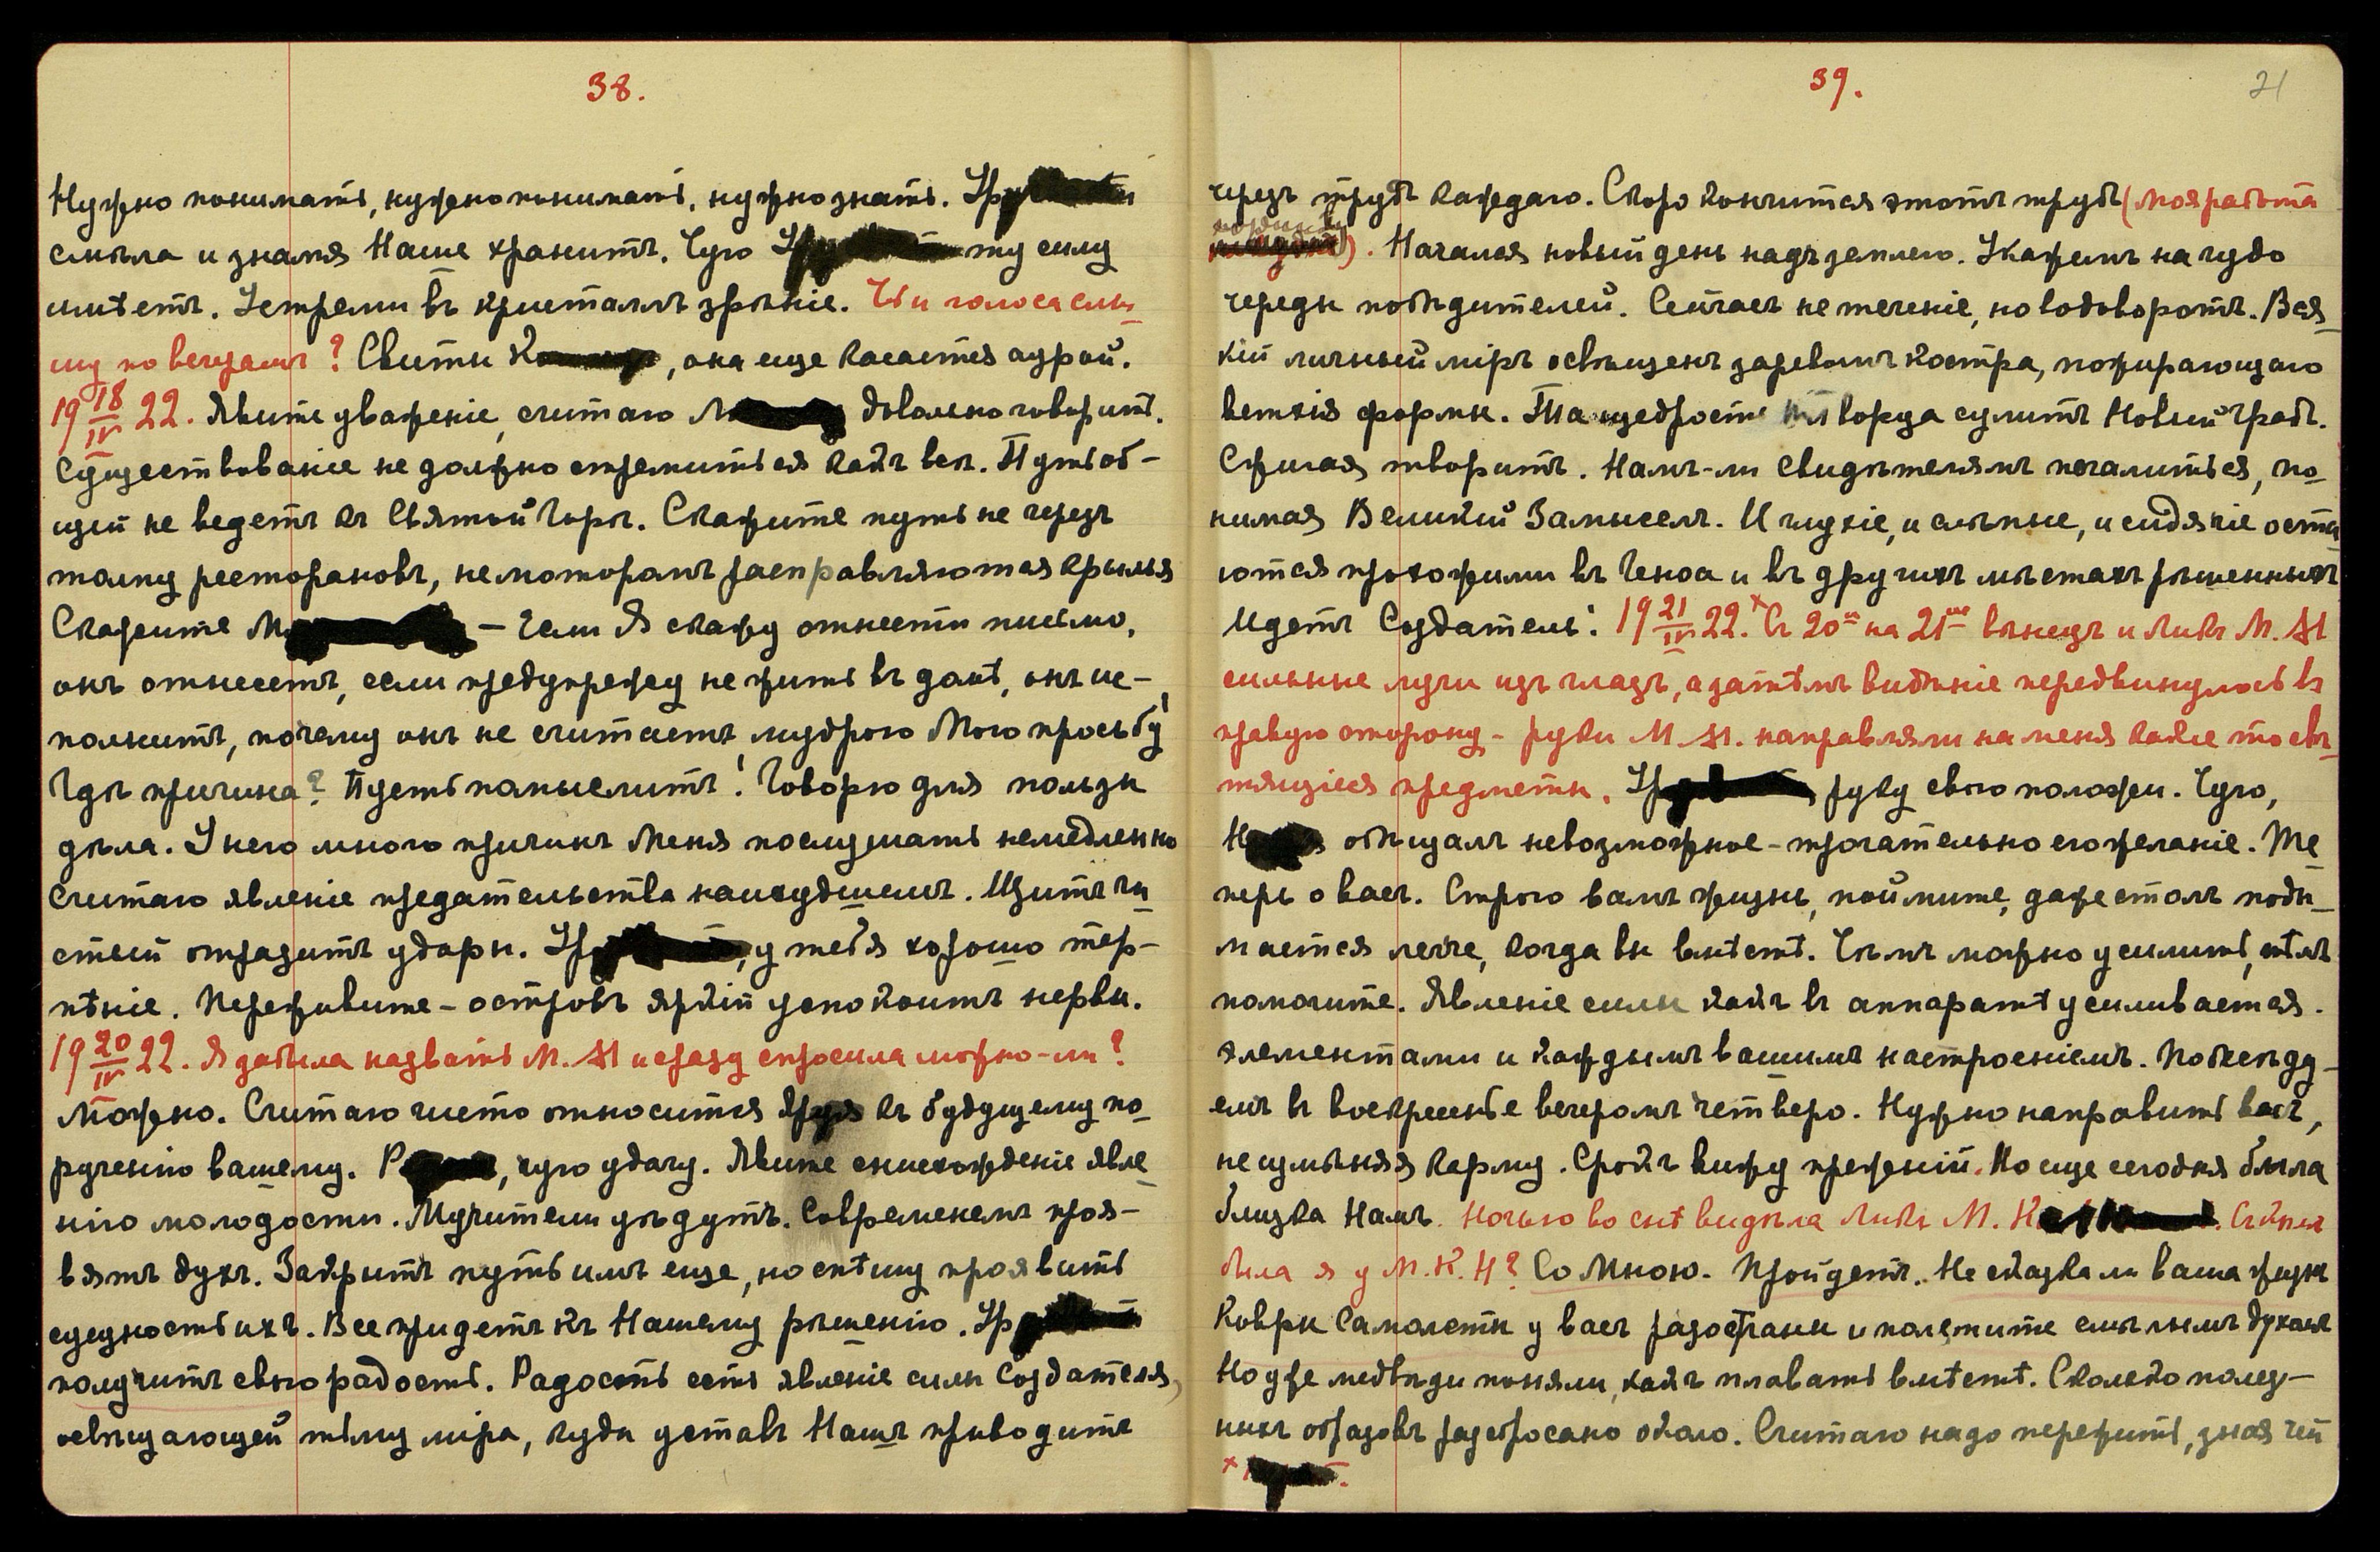 38.
Нужно понимать, нужно понимать, нужно знать. Ур
смѣла и знамя Наше хранитъ. Чую Ур ту силу
имѣетъ. Устреми въ кристаллъ зрѣніе. Чьи голоса слы-
шу по вечерамъ? Свиты К, она еще касается аурой.
19 18/IV 22. Явите уваженіе, считаю Л довольно говоритъ.
Существованіе не должно стремиться какъ всѣ. Путь об-
щій не ведетъ къ Святой Горѣ. Скажите путь не черезъ
толпу ресторановъ, не моторомъ расправляются крылья
Скажите М — Если Я скажу отнести письмо,
онъ отнесетъ, если предупрежу не жить въ домѣ, онъ ис-
полнитъ, почему онъ не считаетъ мудрою Мою просьбу!
Гдѣ причина? Пусть помыслитъ! Говорю для пользы
дѣла. У него много причинъ Меня послушать немедленно
Считаю явленіе предательства наихудшимъ. Щитъ чи-
стый отразитъ удары. Ур, у тебя хорошо тер-
пѣніе. Переживите - островъ яркій успокоитъ нервы.
19 20/IV 22. Я забыла назвать М. М и сразу спросила можно-ли?
Можно. Считаю чисто относится къ будущему по-
рученію вашему. Р, чую удачу. Явите снисхожденіе явле-
нію молодости. Мучители уѣдутъ. Современемъ проя-
вятъ духъ. Закрытъ путь имъ еще, но спѣшу проявить
сущность ихъ. Все придетъ къ Нашему рѣшенію. Ур
получитъ свою радость. Радость есть явленіе силы Создателя,
освѣщающей тьму міра, куда уставъ Нашъ приводитъ
39.
21
черезъ трудъ каждаго. Скоро кончится этотъ трудъ (моя работа
). Начался новый день надъ землею. Укажемъ на чудо
череды побѣдителей. Сейчасъ не теченіе, но водоворотъ. Вся-
кій личный міръ освѣщенъ заревомъ костра, пожирающаго
ветхія формы. Та щедрость Творца сулитъ Новый Градъ.
Сжигая творитъ. Намъ-ли свидѣтелямъ печалиться, по-
нимая Великій Замыселъ. И глухіе, и слѣпые, и сидячіе оста-
ются прохожими въ Геноа и въ другихъ мѣстахъ рѣшенныхъ
Идетъ Создатель! 19 21/IV 22.ˣ Съ 20ᵒ на 21ᵒᵉ вѣнецъ и Ликъ М. М
сильные лучи изъ глазъ, а затѣмъ видѣніе передвинулось въ
правую сторону - руки М. М. направляли на меня какіе то свѣ-
тящіеся предметы. Ур руку свою положи. Чую,
Н обѣщалъ невозможное - трогательно его желаніе. Те-
перь о васъ. Строю вамъ жизнь, поймите, даже столъ поды-
мается легче, когда вы вмѣстѣ. Чѣмъ можно усилить, тѣмъ
помогите. Явленіе силы какъ въ аппаратѣ усиливается.
элементами и каждымъ вашимъ настроеніемъ. Побесѣду-
емъ въ воскресенье вечеромъ четверо. Нужно направить васъ,
не измѣняя карму. Срокъ вижу прежній. Но еще сегодня была
близка Намъ. Ночью во снѣ видѣла Ликъ М. К
была я у М. К. Н? Со Мною. Пройдетъ. Не сказка ли ваша жизнь
Ковры Самолеты у васъ разостланы и полетите смѣлымъ духомъ
Но уже медвѣди поняли, какъ плавать вмѣстѣ. Сколько полез-
ныхъ образовъ разбросано около. Считаю надо пережить, зная чей
ˣ